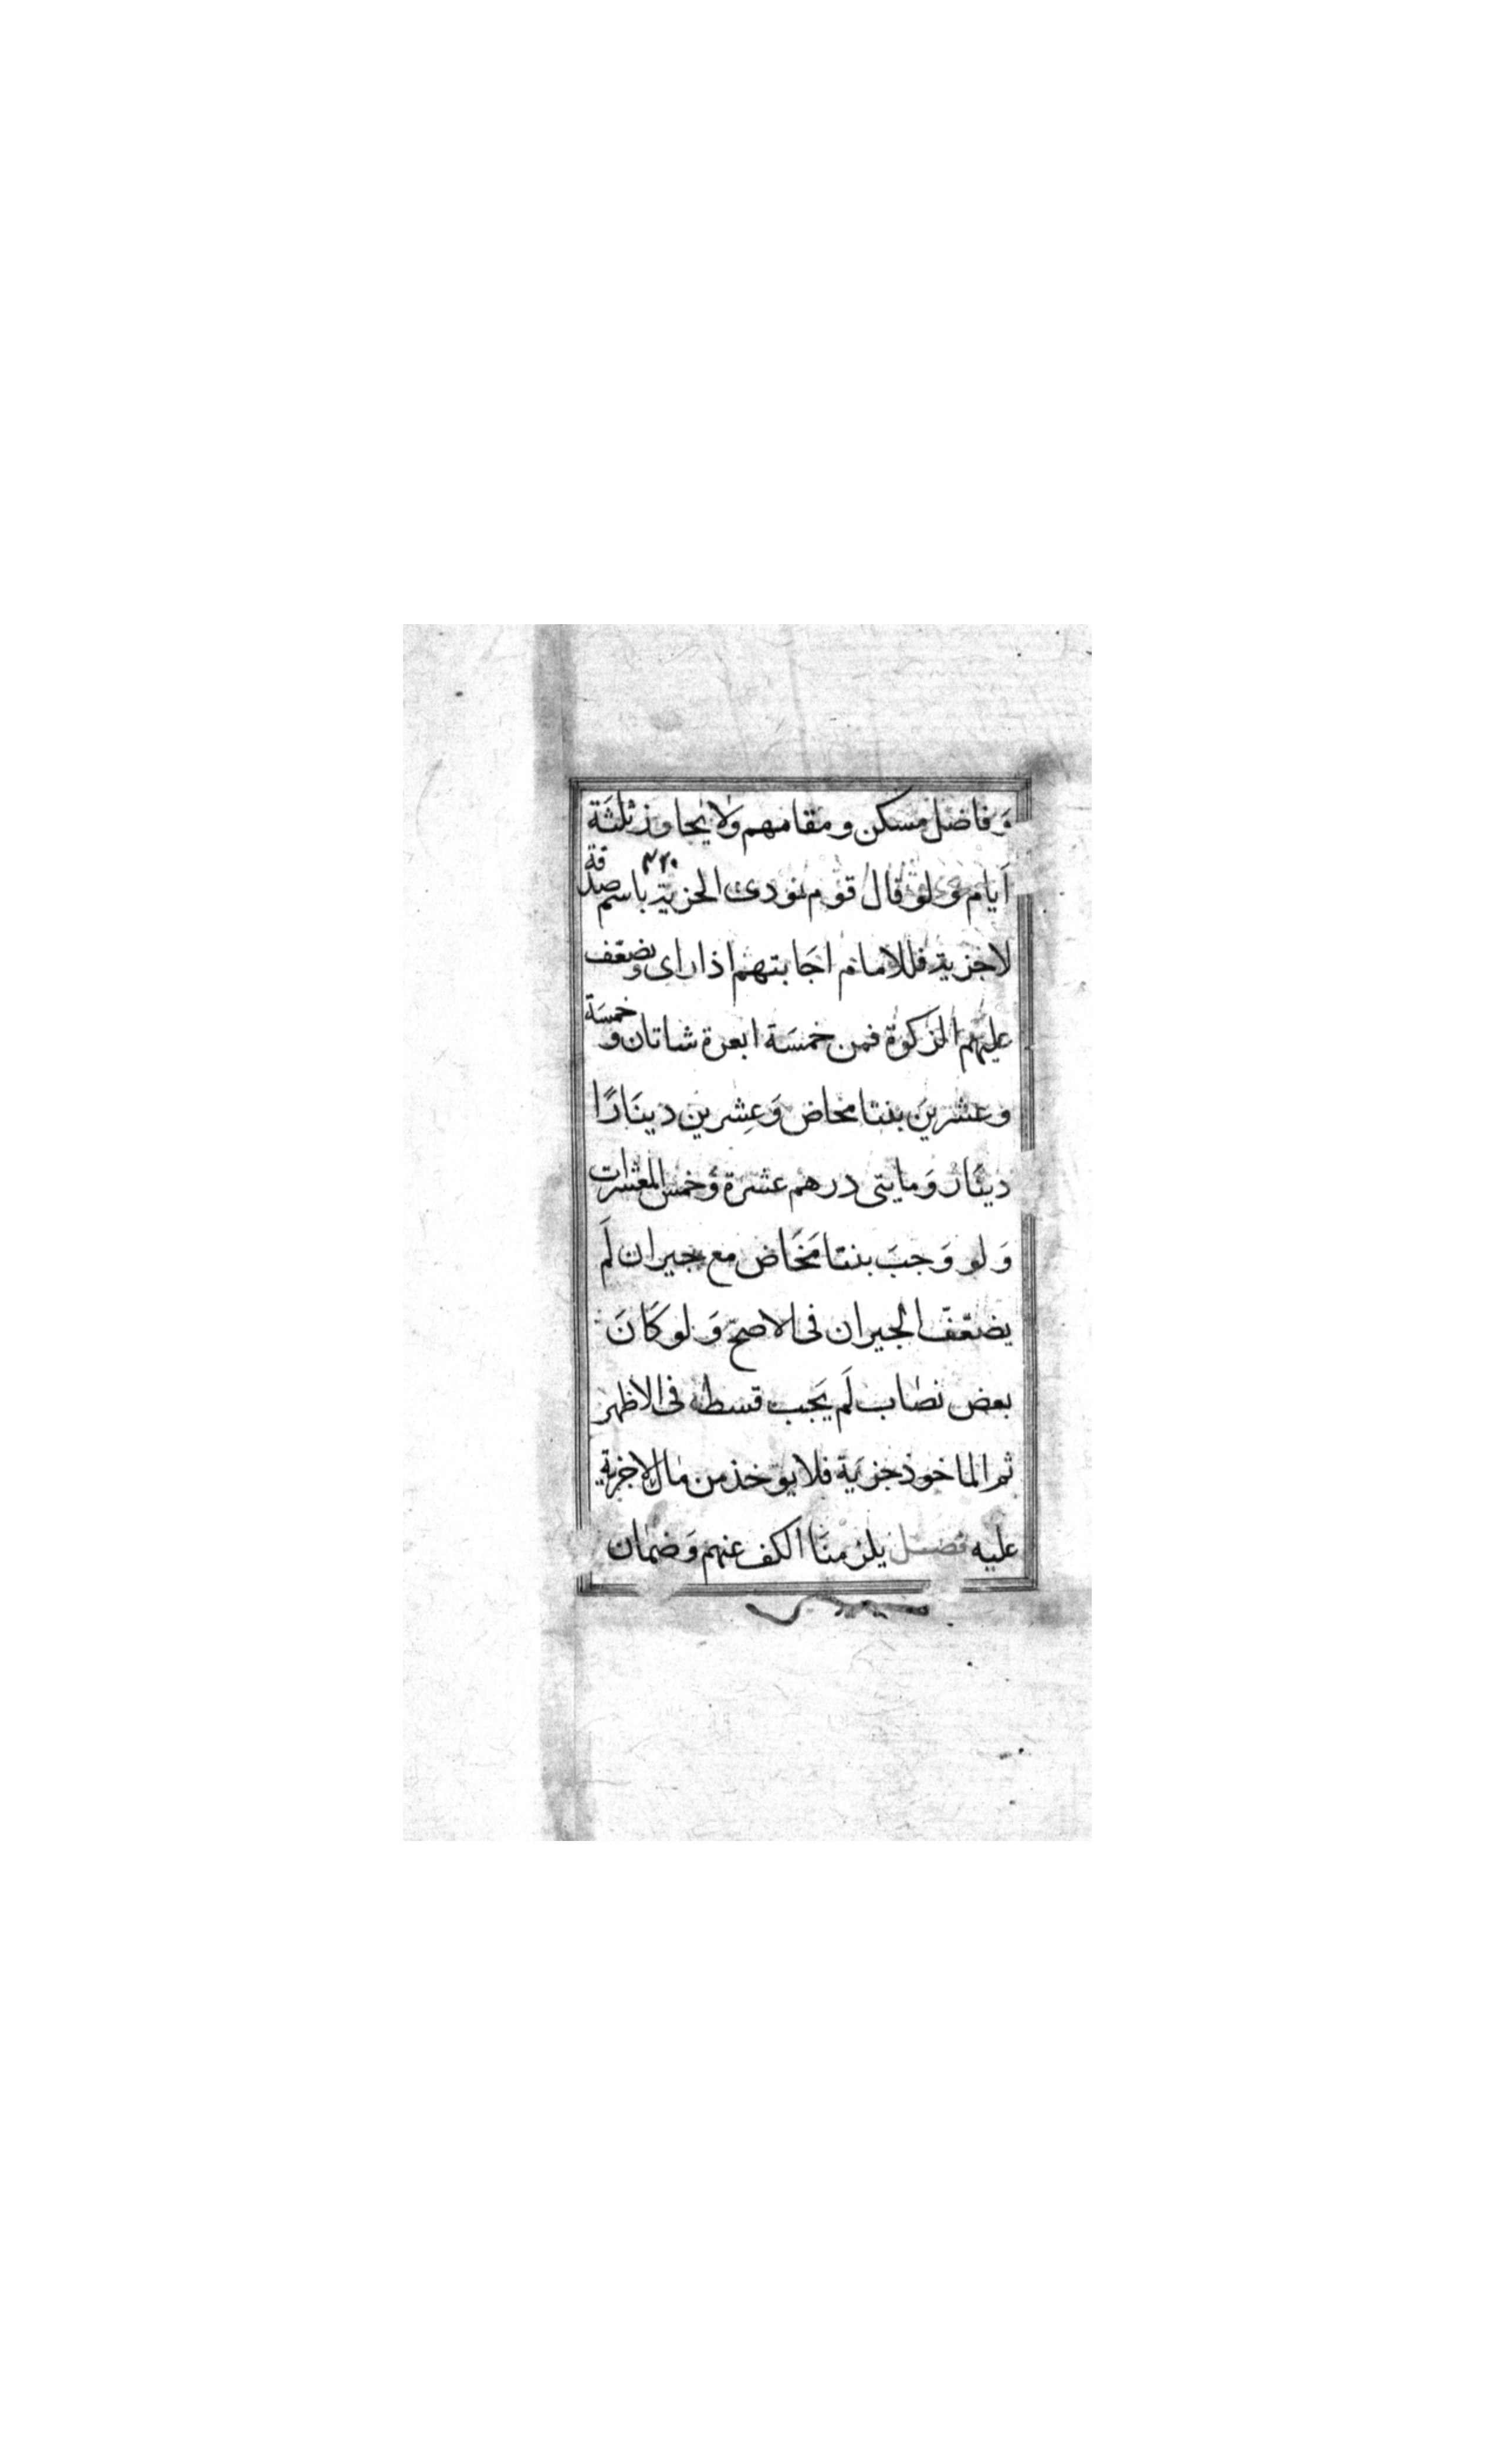 وَفاضل مسكن ومقامهم ولا يجاوز ثلثة
٤٢٠
اَيام ولو قال قوم نودى الجزية باسم صدقة
لا جزية فللامام اجَابتهم اذا راى ويضعّف
عليهم الزكوة فمن خمسَة ابعرة شاتان وخمسَة
وعشرينَ بنتا مخاض وَعِشرين دينَارًا
دينَار وَمايتى درهم عشرة وَخمس المعشرات
وَلو وَجبَ بنتا مَخَاض مع جبران لَم
يضعّف الجبران فى الاصحّ وَلو كَانَ
بعض نصاب لَم يَجب قسطه فى الاظهر
ثم الماخوذ جزيَة فلا يوخذ من مال لا جزية
عليه فصل يلزمنَا الكف عنهم وَضمان